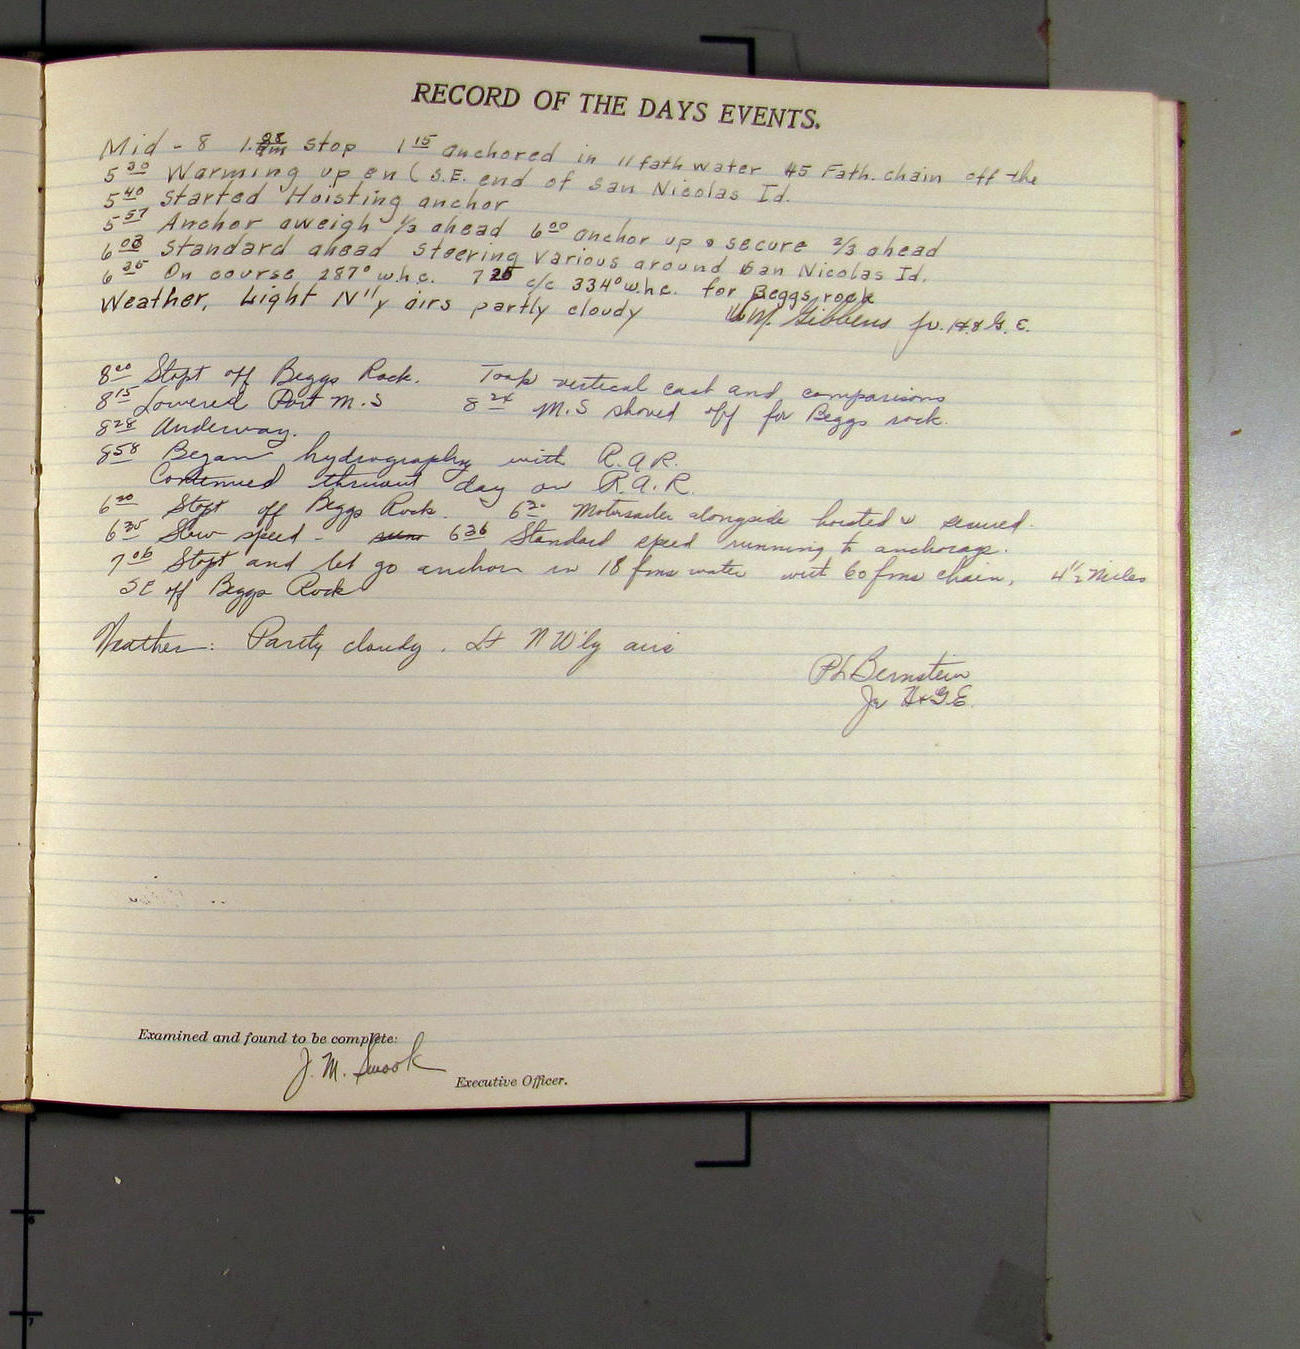 RECORD OF THE DAYS EVENTS.
Mid - 8 1. stop 1 15 anchored in 11 fath water 45 Fath. chain off the
5 30 Warming up en ( S.E. end of San Nicolas Id.
5 40 Started Hoisting anchor
5 57 Anchor aweigh 1/3 ahead 6 00 anchor up & secure 2/3 ahead
6 03 Standard ahead Steering various around San Nicolas Id.
6 25 On course 287° w.h.c. 7 25 c/c 334° w.h.c. for Beggs rock
Weather, Light N'l'y airs partly cloudy W M. Gibbens Jr. H & G. E.
8 00 Stopt off Beggs Rock. Took vertical cast and comparisons
8 15 Lowered Port M.S 8 24 M.S shoved off for Beggs rock.
8 28 Underway.
8 58 Began hydrography with R.A.R.
Continued thruout day on R.A.R.
6 20 Stopt off Beggs Rock. 6 20 Motorsailer alongside hoisted & secured.
6 30 Slow speed - 6 36 Standard speed running to anchorage.
7 06 Stopt and let go anchor in 18 fms water with 60 fms chain, 4 1/2 Miles
SE off Beggs Rock
Weather: Partly cloudy. Lt NW'ly airs
PL Bernstein
Jr H & G E.
Examined and found to be complete:
J. M. Smook
Executive Officer.
6
7